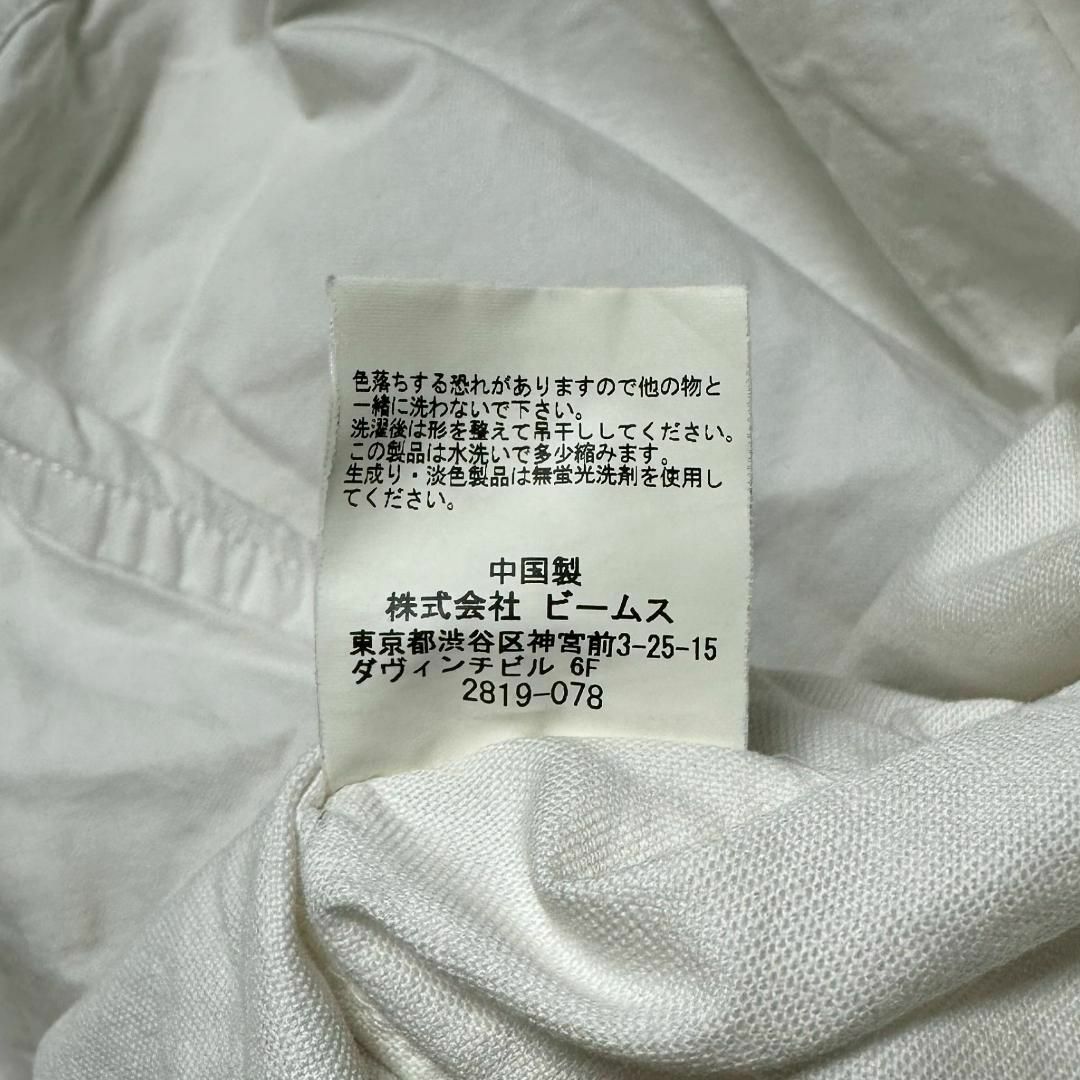 色落ちする恐れがありますので他の物と
一緒に洗わないで下さい。
洗濯後は形を整えて吊干ししてください。
この製品は水洗いで多少縮みます。
生成り・淡色製品は無蛍光洗剤を使用し
てください。
中国製
株式会社 ビームス
東京都渋谷区神宮前3-25-15
ダヴィンチビル 6F
2819-078